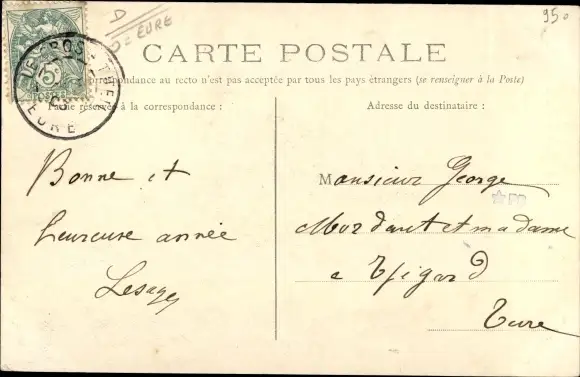 D
DE EURE
950
CARTE POSTALE
correspondance au recto n'est pas acceptée par tous les pays étrangers (se renseigner à la Poste)
Partie réservée à la correspondance :
Adresse du destinataire :
5c
POSTES
EURE
Bonne et
heureuse année
Lesage
Monsieur George
Mordant et madame
a
Eure